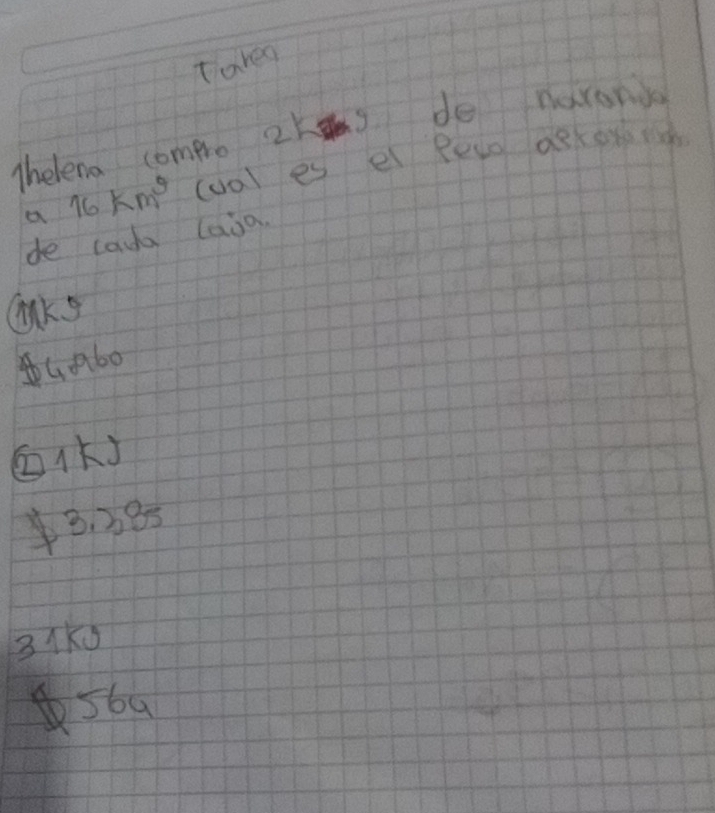 Tarea
Thelena compro 2k g de naranja
a 16 Kmg cual es el Peso
de cada caja.
① 1Kg
$4.960
② 1Kg
$3.285
3 1Kg
$564